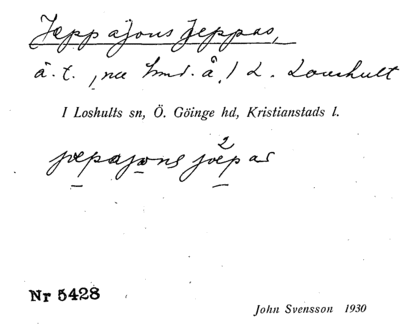 Jæppajons Jeppas,
å. t., nu hmd. å / L. Loushult
I Loshults sn, Ö. Göinge hd, Kristianstads l.
2
jæpajons jæpas
Nr 5428
John Svensson 1930